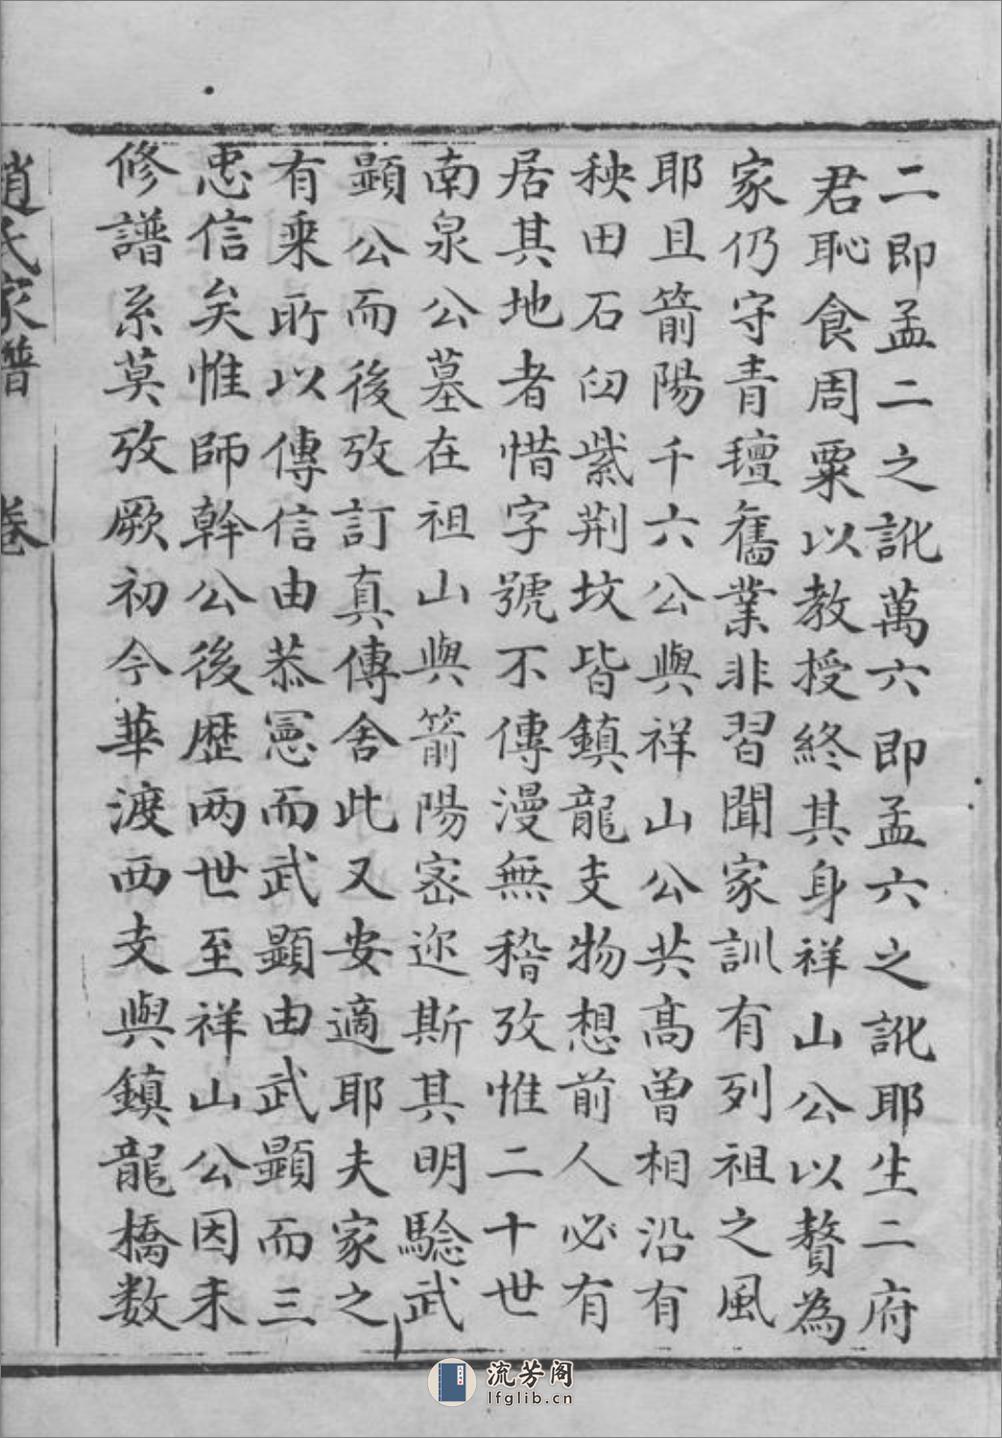 二即孟二之訛萬六即孟六之訛耶生二府
君恥食周粟以教授終其身祥山公以贅為
家仍守青璮舊業非習聞家訓有列祖之風
耶且箭陽千六公與祥山公共高曾相沿有
秧田石臼紫荆坟皆鎮龍支物想前人必有
居其地者惜字號不傳漫無稽攷惟二十世
南泉公墓在祖山與箭陽宻迩斯其明騐武
顯公而後攷訂真傳舍此又安適耶夫家之
有乘所以傳信由恭憲而武顯由武顯而三
忠信矣惟師幹公後歴两世至祥山公因未
修譜系莫攷厥初今華渡西支與鎮龍橋数
趙氏家譜 卷
流芳阁
lfglib.cn